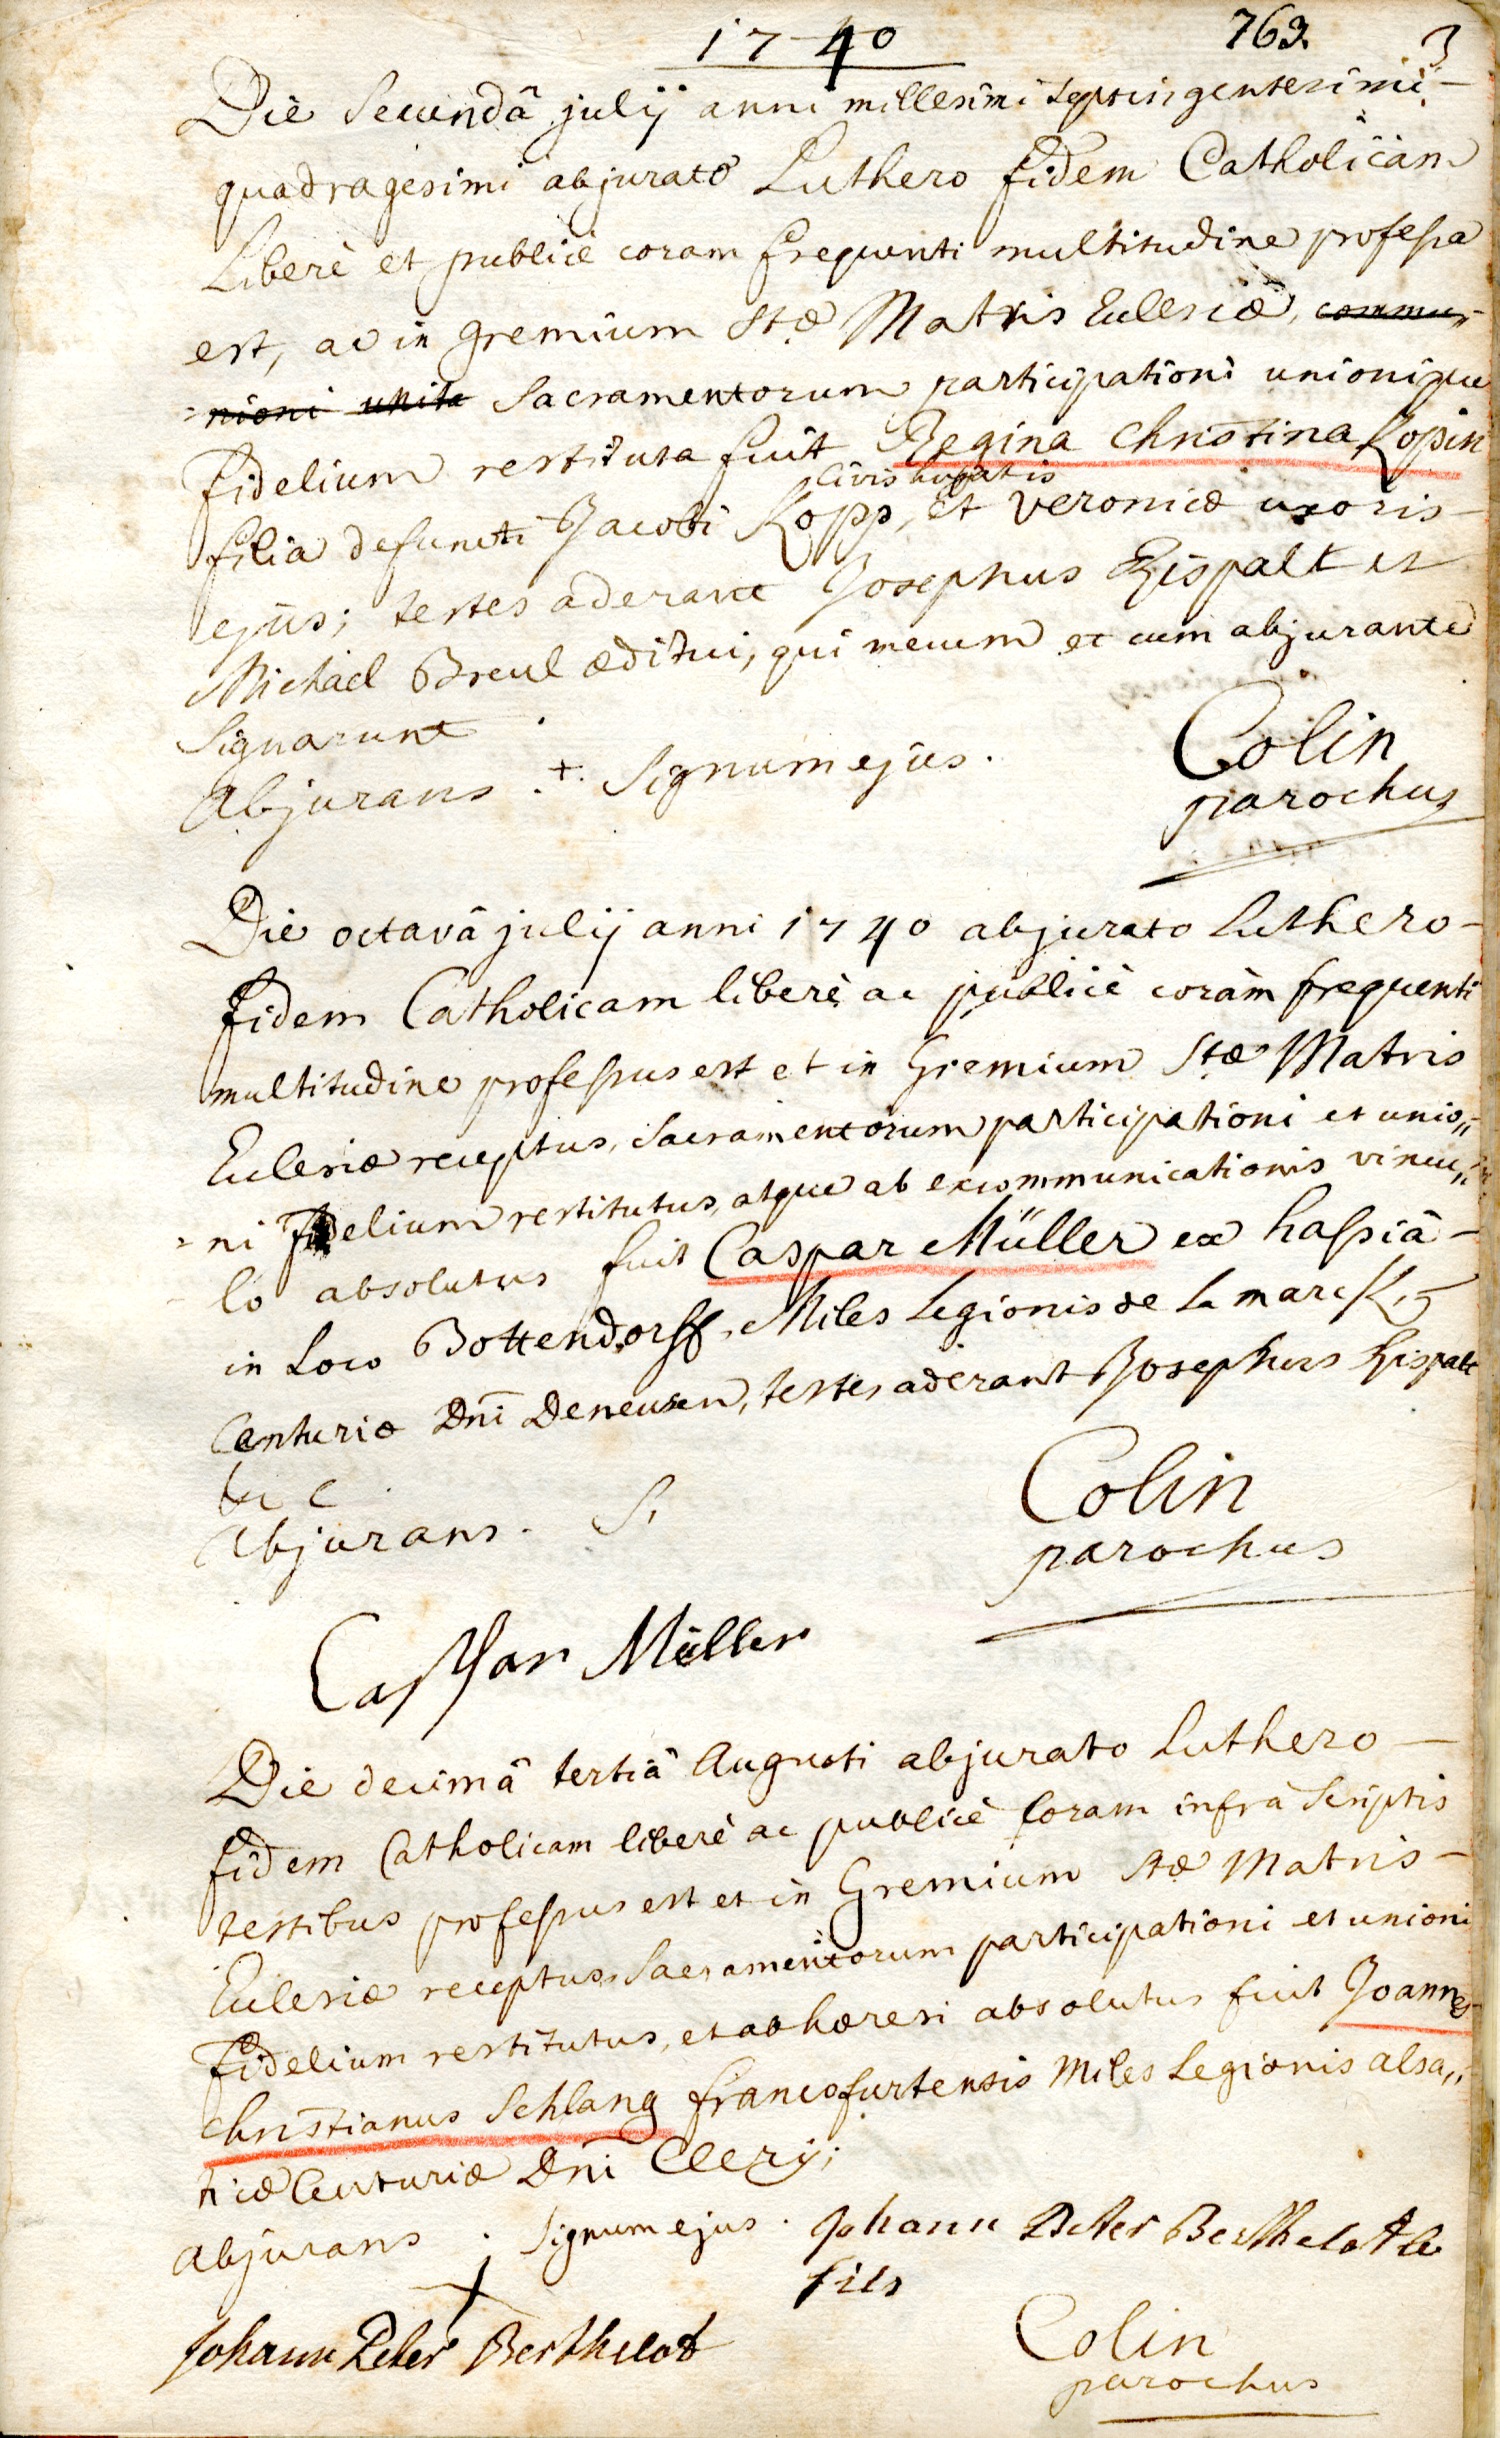 1740 763. 3
Die Secundâ julij anni millesimi septingentesimi -
quadragesimi abjurato Luthero fidem Catholicam
Liberè et publicè coram frequenti multitudine professa
est, ac in gremium Stæ Matris Eclesiæ, commu=
=nioni unita Sacramentorum participationi unionique
fidelium restituta fuit Regina Christina Kopin
civis hujatis
filia defuncti Jacobi Kopp, et Veronicæ uxoris -
ejus; testes aderant Josephus Gispalt et
Michael Breul æditui, qui mecum et cum abjurante
Signarunt
Abjurans .+. Signum ejus. Colin
parochus
Die octavâ julij anni 1740 abjurato Luthero -
fidem Catholicam liberè ac publicè coràm frequenti
multitudine professus est et in Gremium Stæ Matris
Eclesiæ receptus, Sacramentorum participationi et unio„
=ni fidelium restitutus, atque ab excommunicationis vincu„
lo absolutus fuit Caspar Müller ex hassiâ -
in Loco Bottendorff, Miles Legionis de La marck,
Centuriæ Dni Deneusen, testes aderant Josephus Gispalt
Abjurans. S. Colin
parochus
Caspar Müller
Die decimâ tertiâ Augusti abjurato Luthero -
fidem Catholicam liberè ac publicè Coram infrà Scriptis
testibus professus est et in Gremium Stæ Matris -
Eclesiæ receptus, Sacramentorum participationi et unioni
Fidelium restitutus, et ab hæresi absolutus fuit Joannes
Christianus Schlang francofurtensis Miles Legionis alsa„
ticæ Centuriæ Dni Clery;
abjurans . Signum ejus . Johann Peter Berthelot le
+ fils
Johann Peter Berthelot Colin
parochus